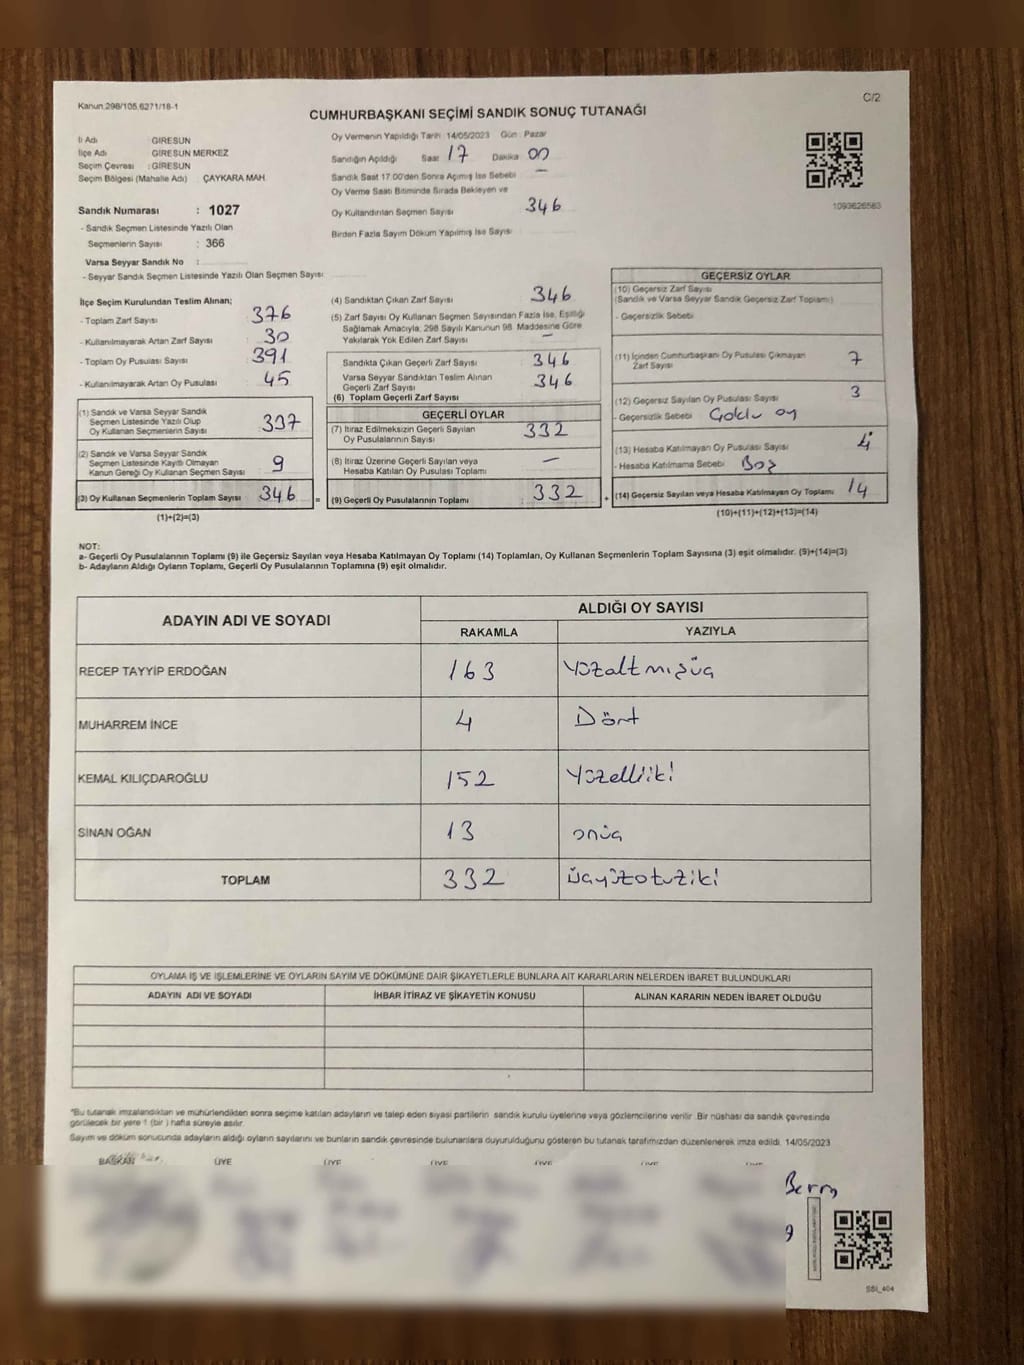 Kanun:298/105,6271/18-1
C/2
CUMHURBAŞKANI SEÇİMİ SANDIK SONUÇ TUTANAĞI
İl Adı GİRESUN
İlçe Adı GİRESUN MERKEZ
Seçim Çevresi : GİRESUN
Seçim Bölgesi (Mahalle Adı) ÇAYKARA MAH.
Sandık Numarası : 1027
- Sandık Seçmen Listesinde Yazılı Olan
Seçmenlerin Sayısı : 366
Varsa Seyyar Sandık No :
- Seyyar Sandık Seçmen Listesinde Yazılı Olan Seçmen Sayısı:
Oy Vermenin Yapıldığı Tarih: 14/05/2023 Gün : Pazar
Sandığın Açıldığı Saat 17 Dakika 00
Sandık Saat 17.00'den Sonra Açımış İse Sebebi —
Oy Verme Saati Bitiminde Sırada Bekleyen ve
Oy Kullandırılan Seçmen Sayısı 346
Birden Fazla Sayım Döküm Yapılmış İse Sayısı
1093626583
İlçe Seçim Kurulundan Teslim Alınan;
- Toplam Zarf Sayısı 376
- Kullanılmayarak Artan Zarf Sayısı 30
- Toplam Oy Pusulası Sayısı 391
- Kullanılmayarak Artan Oy Pusulası 45
(1) Sandık ve Varsa Seyyar Sandık
Seçmen Listesinde Yazılı Olup
Oy Kullanan Seçmenlerin Sayısı 337
(2) Sandık ve Varsa Seyyar Sandık
Seçmen Listesinde Kayıtlı Olmayan
Kanun Gereği Oy Kullanan Seçmen Sayısı 9
(3) Oy Kullanan Seçmenlerin Toplam Sayısı 346 =
(1)+(2)=(3)
(4) Sandıktan Çıkan Zarf Sayısı 346
(5) Zarf Sayısı Oy Kullanan Seçmen Sayısından Fazla İse, Eşitliği
Sağlamak Amacıyla, 298 Sayılı Kanunun 98. Maddesine Göre
Yakılarak Yok Edilen Zarf Sayısı —
Sandıkta Çıkan Geçerli Zarf Sayısı 346
Varsa Seyyar Sandıktan Teslim Alınan
Geçerli Zarf Sayısı 346
(6) Toplam Geçerli Zarf Sayısı
GEÇERLİ OYLAR
(7) İtiraz Edilmeksizin Geçerli Sayılan
Oy Pusulalarının Sayısı 332
(8) İtiraz Üzerine Geçerli Sayılan veya
Hesaba Katılan Oy Pusulası Toplamı —
(9) Geçerli Oy Pusulalarının Toplamı : 332 +
GEÇERSİZ OYLAR
(10) Geçersiz Zarf Sayısı
(Sandık ve Varsa Seyyar Sandık Geçersiz Zarf Toplamı)
- Geçersizlik Sebebi
(11) İçinden Cumhurbaşkanı Oy Pusulası Çıkmayan
Zarf Sayısı 7
(12) Geçersiz Sayılan Oy Pusulası Sayısı 3
- Geçersizlik Sebebi
(13) Hesaba Katılmayan Oy Pusulası Sayısı 4
- Hesaba Katılmama Sebebi Boş
(14) Geçersiz Sayılan veya Hesaba Katılmayan Oy Toplamı 14
(10)+(11)+(12)+(13)=(14)
NOT:
a- Geçerli Oy Pusulalarının Toplamı (9) ile Geçersiz Sayılan veya Hesaba Katılmayan Oy Toplamı (14) Toplamları, Oy Kullanan Seçmenlerin Toplam Sayısına (3) eşit olmalıdır. (9)+(14)=(3)
b- Adayların Aldığı Oyların Toplamı, Geçerli Oy Pusulalarının Toplamına (9) eşit olmalıdır.
ADAYIN ADI VE SOYADI ALDIĞI OY SAYISI
RAKAMLA YAZIYLA
RECEP TAYYİP ERDOĞAN 163 Yüzaltmışüç
MUHARREM İNCE 4 Dört
KEMAL KILIÇDAROĞLU 152 Yüzelliiki
SİNAN OĞAN 13 onüç
TOPLAM 332 Üçyüzotuziki
OYLAMA İŞ VE İŞLEMLERİNE VE OYLARIN SAYIM VE DÖKÜMÜNE DAİR ŞİKAYETLERLE BUNLARA AİT KARARLARIN NELERDEN İBARET BULUNDUKLARI
ADAYIN ADI VE SOYADI İHBAR İTİRAZ VE ŞİKAYETİN KONUSU ALINAN KARARIN NEDEN İBARET OLDUĞU
*Bu tutanak imzalandıktan ve mühürlendikten sonra seçime katılan adayların ve talep eden siyasi partilerin sandık kurulu üyelerine veya gözlemcilerine verilir. Bir nüshası da sandık çevresinde
görülecek bir yere 1 (bir ) hafta süreyle asılır.
Sayım ve döküm sonucunda adayların aldığı oyların sayılarını ve bunların sandık çevresinde bulunanlara duyurulduğunu gösteren bu tutanak tarafımızdan düzenlenerek imza edildi. 14/05/2023
BAŞKAN ÜYE ÜYE ÜYE ÜYE ÜYE ÜYE
SBI_404